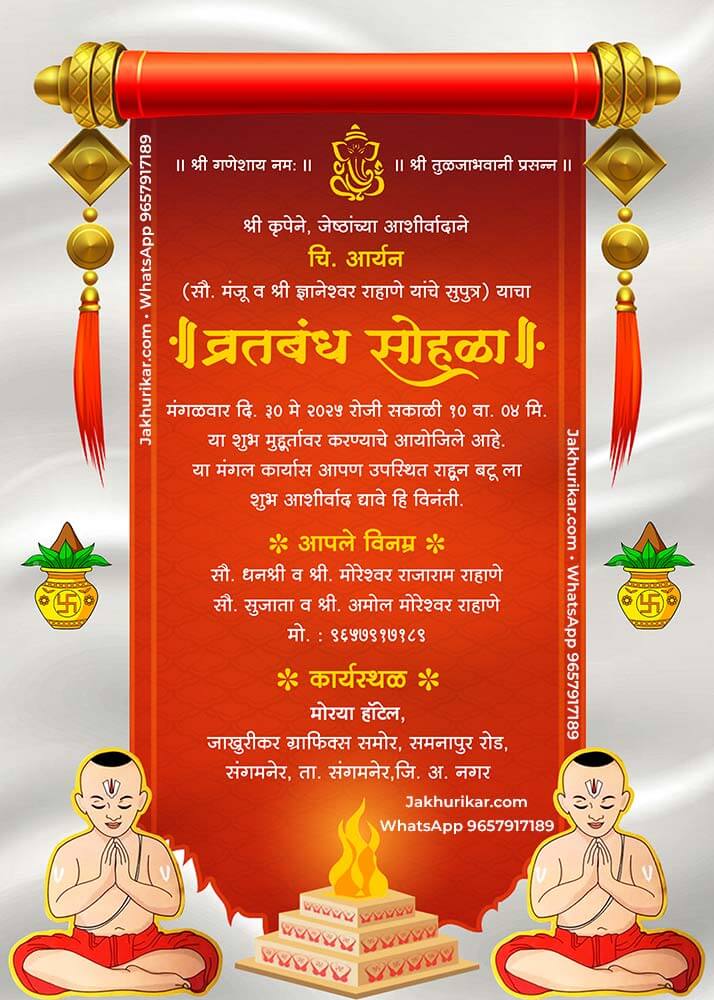 ॥ श्री गणेशाय नमः ॥ ॥ श्री तुळजाभवानी प्रसन्न ॥
श्री कृपेने, जेष्ठांच्या आशीर्वादाने
चि. आर्यन
(सौ. मंजू व श्री ज्ञानेश्वर राहाणे यांचे सुपुत्र) याचा
॥व्रतबंध सोहळा॥
मंगळवार दि. ३० मे २०२५ रोजी सकाळी १० वा. ०४ मि.
या शुभ मुहूर्तावर करण्याचे आयोजिले आहे.
या मंगल कार्यास आपण उपस्थित राहून बटू ला
शुभ आशीर्वाद द्यावे हि विनंती.
आपले विनम्र
सौ. धनश्री व श्री. मोरेश्वर राजाराम राहाणे
सौ. सुजाता व श्री. अमोल मोरेश्वर राहाणे
मो. : ९६५७९१७१८९
कार्यस्थळ
मोरया हॉटेल,
जाखुरीकर ग्राफिक्स समोर, समनापुर रोड,
संगमनेर, ता. संगमनेर,जि. अ. नगर
Jakhurikar.com
WhatsApp 9657917189
Jakhurikar.com • WhatsApp 9657917189
Jakhurikar.com • WhatsApp 9657917189